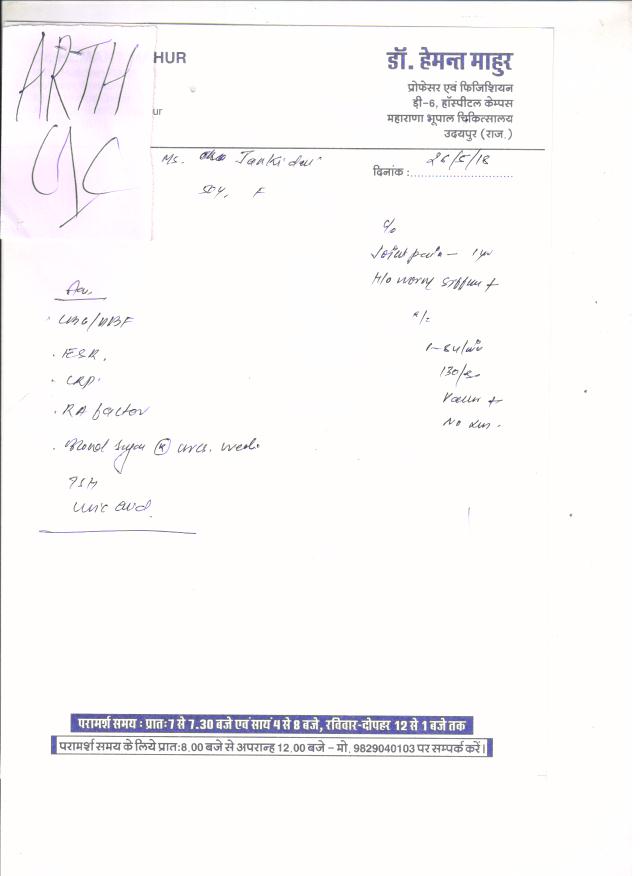 ARTH
C/C
HUR
ur
डॉ. हेमन्त माहुर
प्रोफेसर एवं फिजिशियन
डी-6, हॉस्पीटल केम्पस
महाराणा भूपाल चिकित्सालय
उदयपुर (राज.)
Ms. Janki devi
F
दिनांक : 26/5/18
C/o
Joint pain - 1 yr
H/o morning stiffness +
Adv.
CBC/PBF
ESR.
CRP
RA factor
Blood sugar (R)
TSH
Uric acid
130/80
परामर्श समय : प्रातः 7 से 7.30 बजे एवं सायं 4 से 8 बजे, रविवार-दोपहर 12 से 1 बजे तक
परामर्श समय के लिये प्रातः 8.00 बजे से अपरान्ह 12.00 बजे – मो. 9829040103 पर सम्पर्क करें।